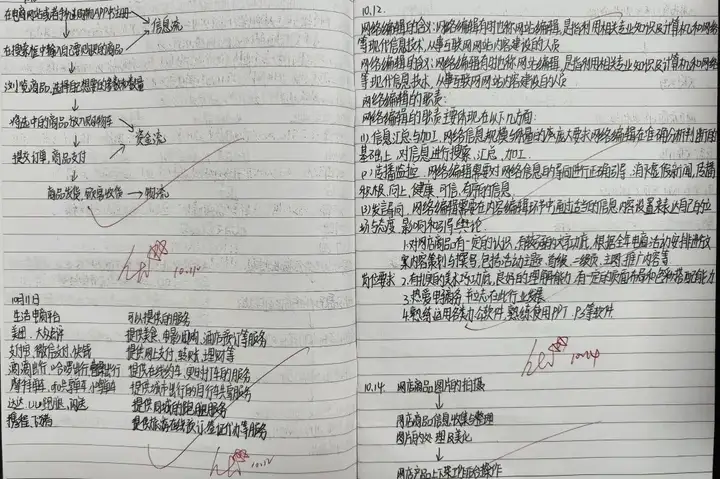 在电商网站或者移动端的APP中注册
信息流
在搜索框中输入自己需要购买的商品
浏览商品,选择自己想要的 数量
将选中的商品放入购物车
资金流
提交订单,商品支付
商品发货,收货 物流
10.110
10月11日
生活电商平台 可以提供的服务
美团、大众点评 提供美食、电影、酒店预订等服务
支付宝、微信支付、快钱 提供网上支付、转账、理财等
滴滴出行、哈啰出行 提供在线约车、实时打车的服务
摩拜单车、小黄车 提供城市出行的自行车共享服务
达达、UU跑腿、闪送 提供同城的跑腿服务
携程、飞猪 提供旅游在线预订、签证代办等服务
10.12
10.12.
网络编辑的含义:网络编辑有时也称网站编辑,是指利用相关专业知识及计算机和网络
等现代信息技术,从事互联网网站内容建设的人员
网络编辑的含义:网络编辑有时也称网站编辑,是指利用相关专业知识及计算机和网络
等现代信息技术,从事互联网网站内容建设的人员
网络编辑的职责:
网络编辑的职责主要体现在以下几方面:
(1)信息汇总与加工,网络信息规模与数量的庞大要求网络编辑在准确的判断的
基础上,对信息进行搜索、汇总、加工.
(2)传播监控,网络编辑需要对网络信息的导向进行正确引导,消除虚假新闻,传播
积极、向上、健康、可信、有用的信息
(3)发言导向,网络编辑需要在内容编辑环节中通过适当的信息内容设置来表达自己的立
场与态度,影响和引导舆论.
1.对网店商品有一定的认识,有较强的文字功底,根据全年电商活动安排进行文
案内容策划与撰写,包括活动主题、首焦、二级页、主图、推广内容等
岗位要求 2.有扎实的美术功底,良好的理解能力,有一定的页面布局和色彩搭配能力
3.热爱电商务,有志在此行业发展
4.熟练运用各类办公软件,熟练使用PPT、Ps等软件
10.14
10.14. 网店商品图片的拍摄
网店商品信息收集与整理
图片的处理及美化
网店产品上下架工作后台操作